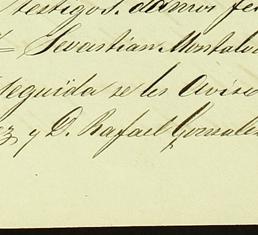 testigos. damos fe
Sevastian Montalvo
Seguida se les Avisó
ez y D. Rafael Gonzalez